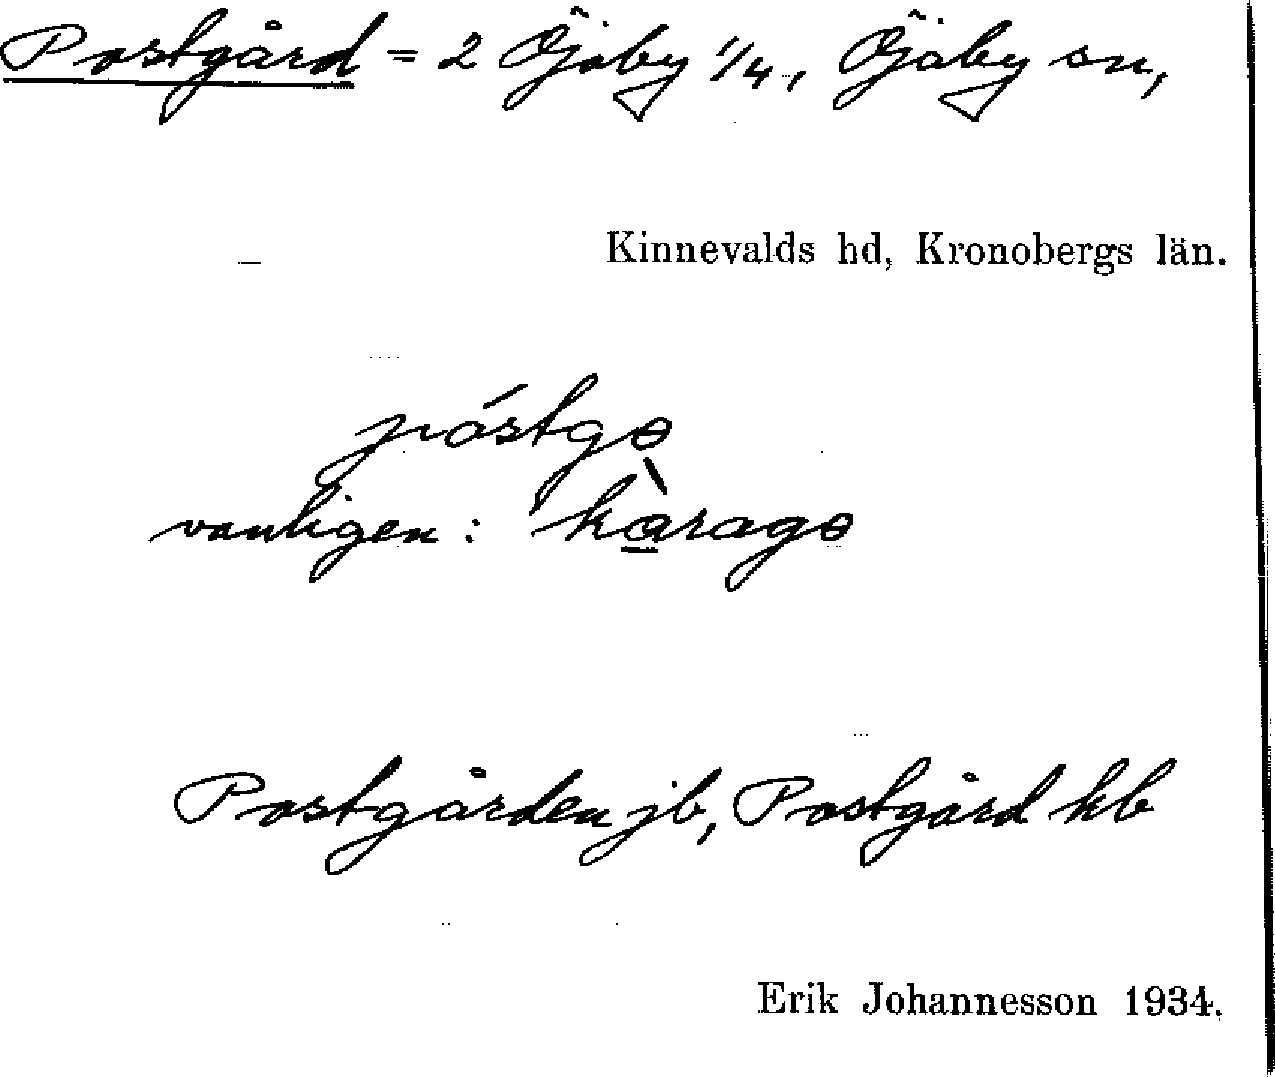 Postgård = 2 Öjaby 1/4, Öjaby sn,
Kinnevalds hd, Kronobergs län.
póstgɵ
vanligen: hàragɵ
Postgården jb, Postgård kb
Erik Johannesson 1934.